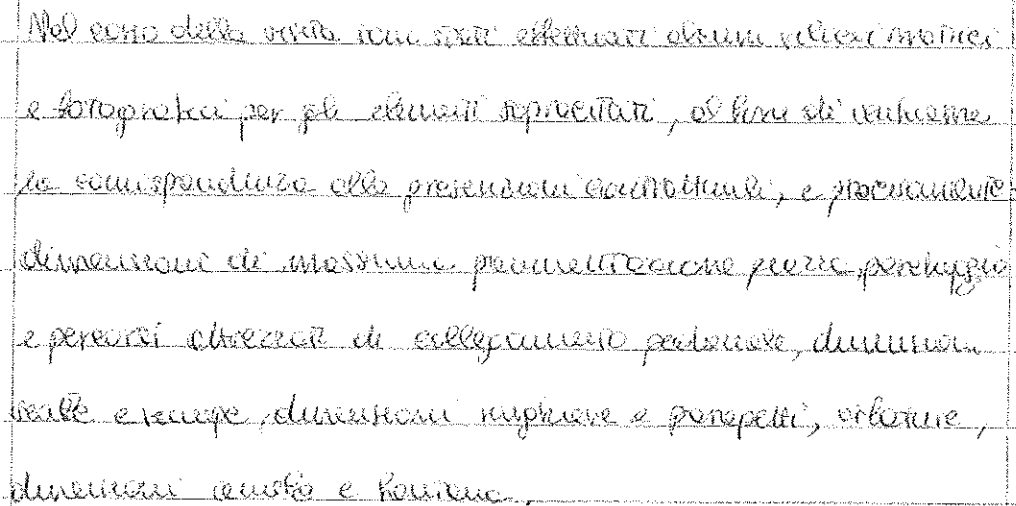 Nel corso della visita sono stati effettuati alcuni rilievi metrici
e fotografici per gli elementi sopracitati, al fine di verificarne
la corrispondenza alle prescrizioni contrattuali, e precisamente:
dimensioni di massima pavimentazione piazza, parcheggio
e percorsi attrezzati di collegamento pedonale, dimensioni
scale e rampe, dimensioni ringhiere e parapetti, alberature,
dimensioni e fontana.